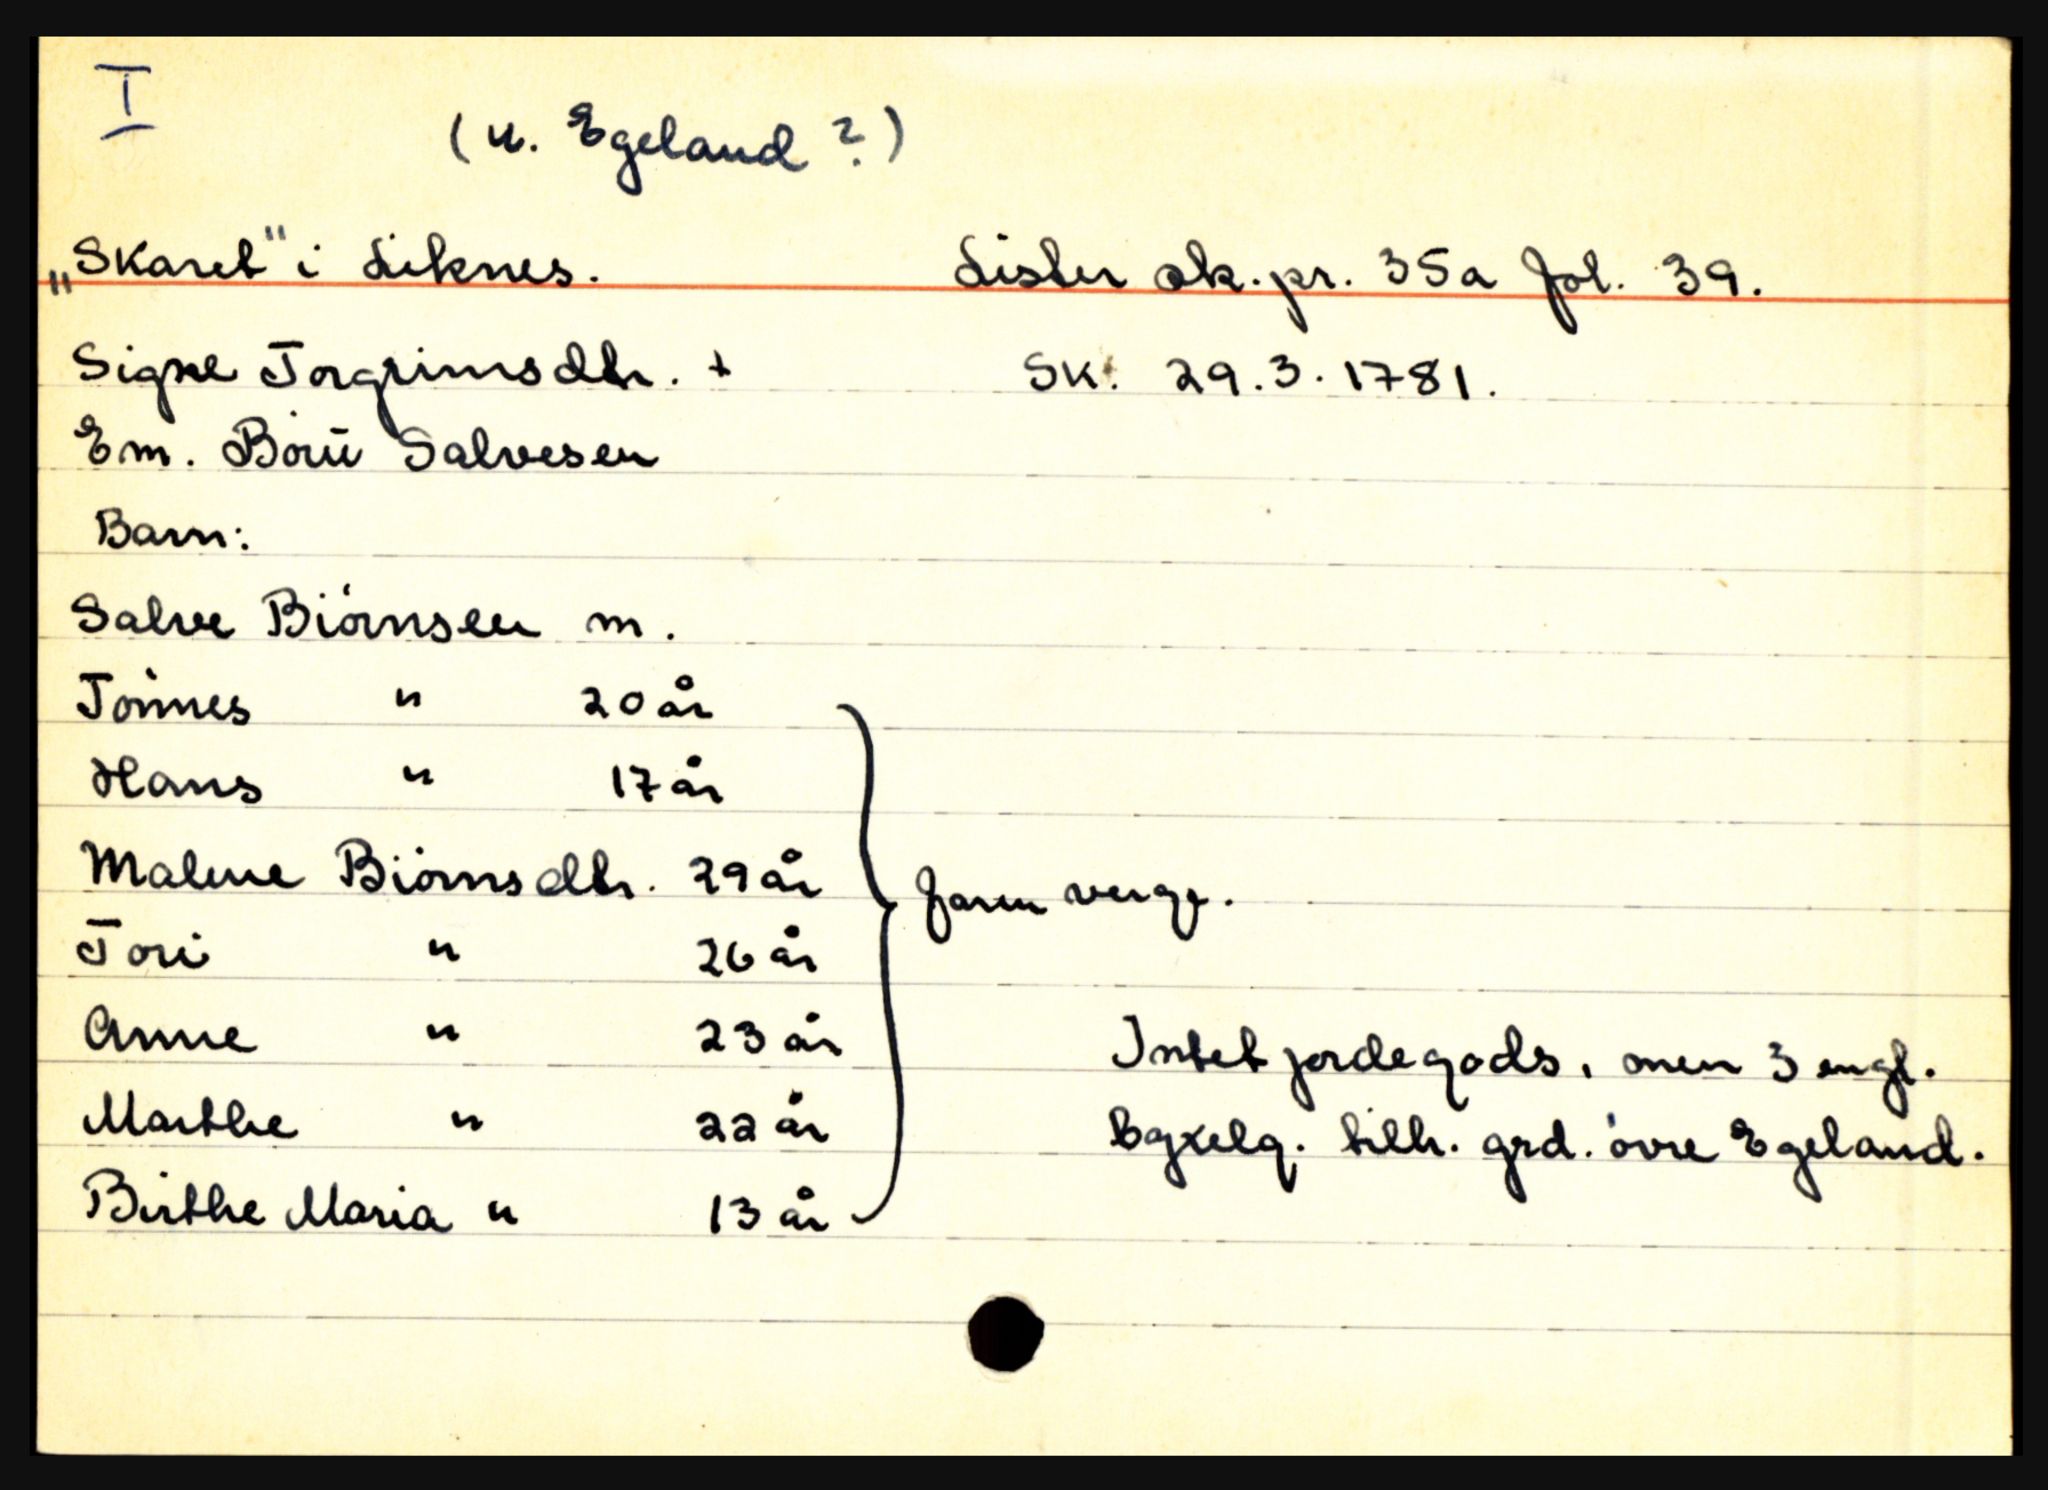 I
(u. Egeland?)
„Skaret" i Liknes. Lister sk.pr. 35a fol. 39.
Signe Torgrimsdtr. + Sk. 29.3.1781.
Em. Salvesen
Barn:
Salve Biörnsen m.
Tönnes " 20 år
Hans " 17 år
Malene Biörnsdtr. 29 år
Tori " 26 år
faren verge.
Anne " 23 år
Marthe " 22 år
Birthe Maria " 13 år
Intet jordegods, men 3 engl.
bgxelg. tilh. grd. övre Egeland.